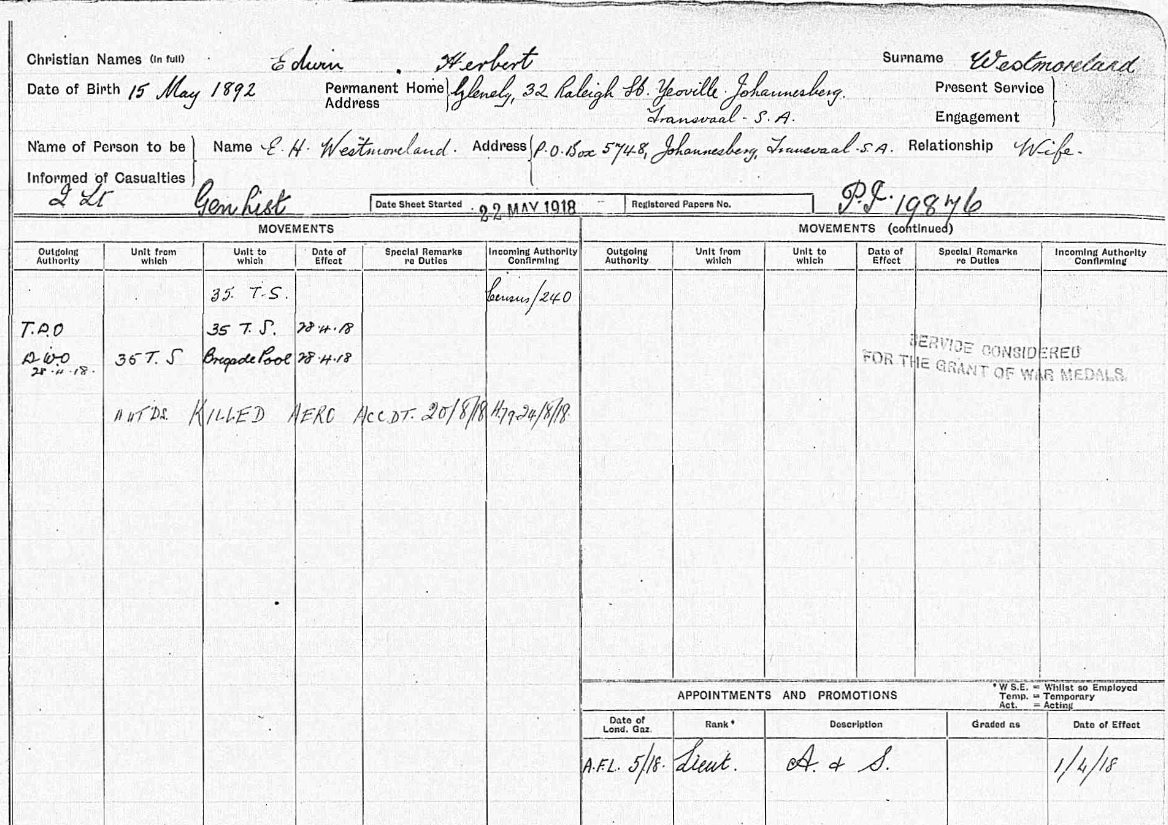 Christian Names (in full) Edwin Herbert Surname Westmoreland
Date of Birth 15 May 1892 Permanent Home Address Glenely, 32 Raleigh St. Yeoville Johannesberg. Present Service
Transvaal - S.A. Engagement
Name of Person to be Informed of Casualties Name E. H. Westmoreland. Address P.O. Box 5748, Johannesberg, Transvaal - S.A. Relationship Wife.
2 Lt Gen List Date Sheet Started 22 MAY 1918 Registered Papers No. P.I. 19876
MOVEMENTS MOVEMENTS (continued)
Outgoing Authority Unit from which Unit to which Date of Effect Special Remarks re Duties Incoming Authority Confirming Outgoing Authority Unit from which Unit to which Date of Effect Special Remarks re Duties Incoming Authority Confirming
35. T.S. Census/240
35 T.S. 28.4.18
35 T.S Brigade Pool 28.4.18
28.4.18.
SERVICE CONSIDERED
FOR THE GRANT OF WAR MEDALS.
KILLED AERO ACCDT. 20/8/18 24/8/18
APPOINTMENTS AND PROMOTIONS
*W S.E. = Whilst so Employed
Temp. = Temporary
Act. = Acting
Date of Lond. Gaz. Rank* Description Graded as Date of Effect
A.F.L. 5/18. Lieut. A. & S. 1/4/18